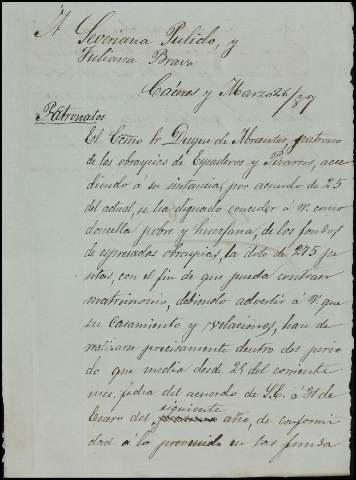 A Severiana Pulido, y
Juliana Bravo
Cáceres y Marzo 26/87
Patronatos
El Excmo Sr Duque de Abrantes, patrono
de las obras pias de Espaderos y Pizarros, acce
diendo á su instancia, por acuerdo de 25
del actual, se ha dignado conceder á V. como
doncella pobre y huerfana, de los fondos
de espresadas obras pias, la dote de 275 pe
setas, con el fin de que pueda contraer
matrimonio, debiendo advertir á V. que
su casamiento y velaciones, han de
realizarse precisamente dentro del perio
do que media desde 25 del corriente
mes, fecha del acuerdo de S.E. á 31 de
Enero del siguiente año, de conformi
dad á lo prevenido en las funda